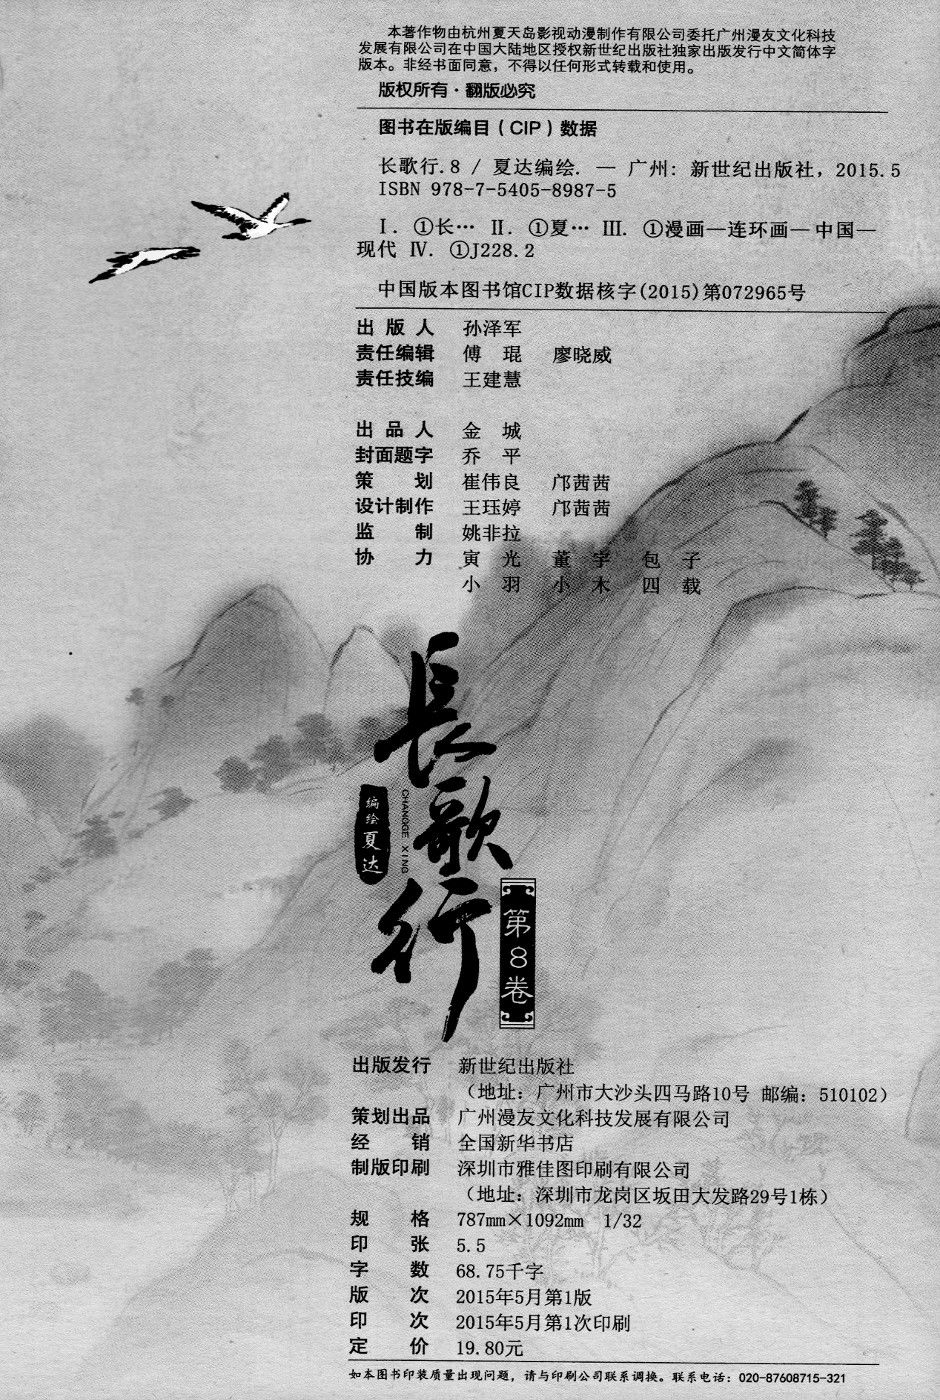 本著作物由杭州夏天岛影视动漫制作有限公司委托广州漫友文化科技
发展有限公司在中国大陆地区授权新世纪出版社独家出版发行中文简体字
版本。非经书面同意，不得以任何形式转载和使用。
版权所有·翻版必究
图书在版编目（CIP）数据
长歌行.8 / 夏达编绘. — 广州: 新世纪出版社, 2015.5
ISBN 978-7-5405-8987-5
Ⅰ. ①长… Ⅱ. ①夏… Ⅲ. ①漫画—连环画—中国—
现代 Ⅳ. ①J228.2
中国版本图书馆CIP数据核字(2015)第072965号
出 版 人 孙泽军
责任编辑 傅 琨 廖晓威
责任技编 王建慧
出 品 人 金 城
封面题字 乔 平
策 划 崔伟良 邝茜茜
设计制作 王珏婷 邝茜茜
监 制 姚非拉
协 力 寅 光 董 宇 包 子
小 羽 小 木 四 载
長歌行
CHANGGE XING
编绘 夏达
第8卷
出版发行 新世纪出版社
（地址: 广州市大沙头四马路10号 邮编: 510102）
策划出品 广州漫友文化科技发展有限公司
经 销 全国新华书店
制版印刷 深圳市雅佳图印刷有限公司
（地址: 深圳市龙岗区坂田大发路29号1栋）
规 格 787mm×1092mm 1/32
印 张 5.5
字 数 68.75千字
版 次 2015年5月第1版
印 次 2015年5月第1次印刷
定 价 19.80元
如本图书印装质量出现问题，请与印刷公司联系调换。联系电话：020-87608715-321